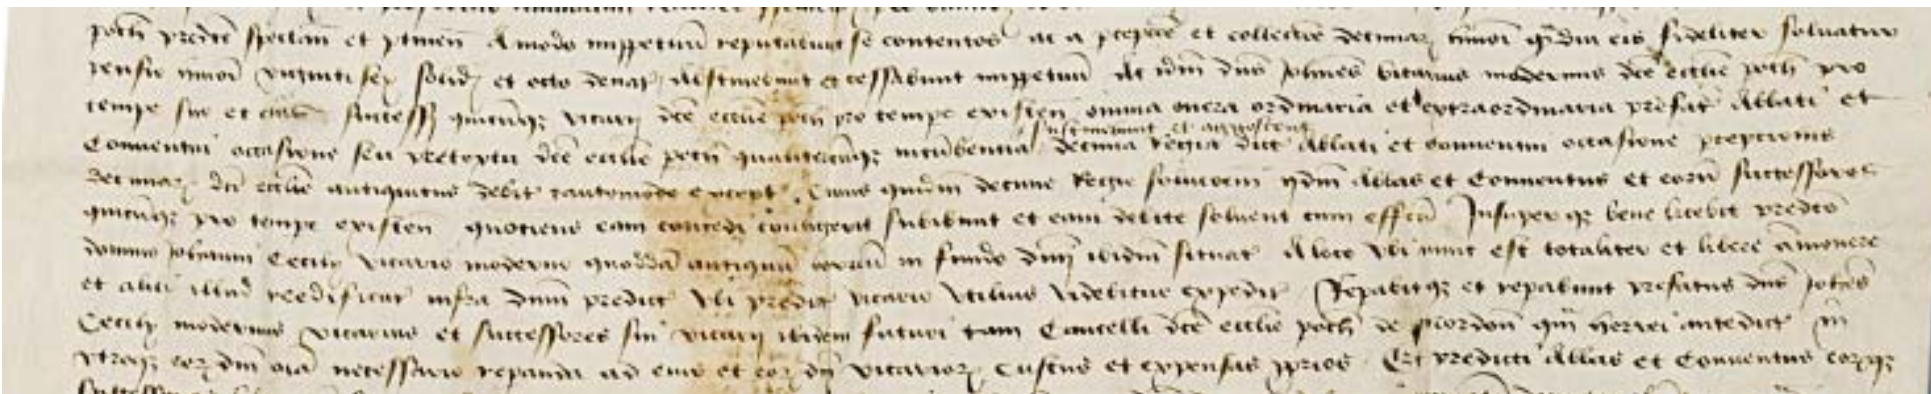 poch predce spectan et ptinen Amodo imppetuu reputabunt se contentos ac a pcepcoe et colleccoe decimar huiusmoi qmdiu eis fideliter soluatur
pensio huiusmoi viginti sex solid et octo denar Abstinebunt et cessabunt imppetuu Ac idm dns Johnes vicarius modernus dce ecclie poch pro
tempe suo et eius successor quicunqz vicarij dce ecclie poch pro tempe existen omnia onera ordinaria et extraordinaria prefat Abbati et
Conuentui occasione seu pretextu dce ecclie poch qualitercunqz incubencia sustinebunt et agnoscent decima regia dict Abbati et conuentui occasione pcepcionis
decimar dce ecclie antiquitus debit tantomodo except Cuius quidm decime Regie solucoem ijdm Abbas et Conuentus et eoru successores
quicuqz pro tempe existen quociens eam concedi contigerit subibunt et eam debite soluent cum effcu Insuper qz bene licebit predco
domino Johanni Cecily vicario moderno quodda antiquu orreu in fundo dnij ibidm situat A loco vbi nunc est totaliter et libere amouere
et alibi illud reedificar infra dnm predict vbi predict vicario vtilius videbitur expedir Repabitqz et repabunt prefatus dns Johes
Cecily modernus vicarius et successores sui vicarij ibidem futuri tam Cancellu dce ecclie poch de
vtraqz eor dnm oia necessario repanda ad eius et eor dij vicarior Custus et expensas pprios Et predicti Abbas et Conuentus eorqz